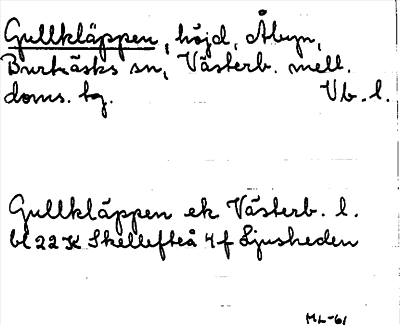 Gullkläppen, höjd, Åbyn,
Burträsks sn, Västerb. mell.
doms. tg. Vb. l.
Gullkläppen ek Västerb. l.
bl 22 K Skellefteå 4 f Ljusheden
ML-61